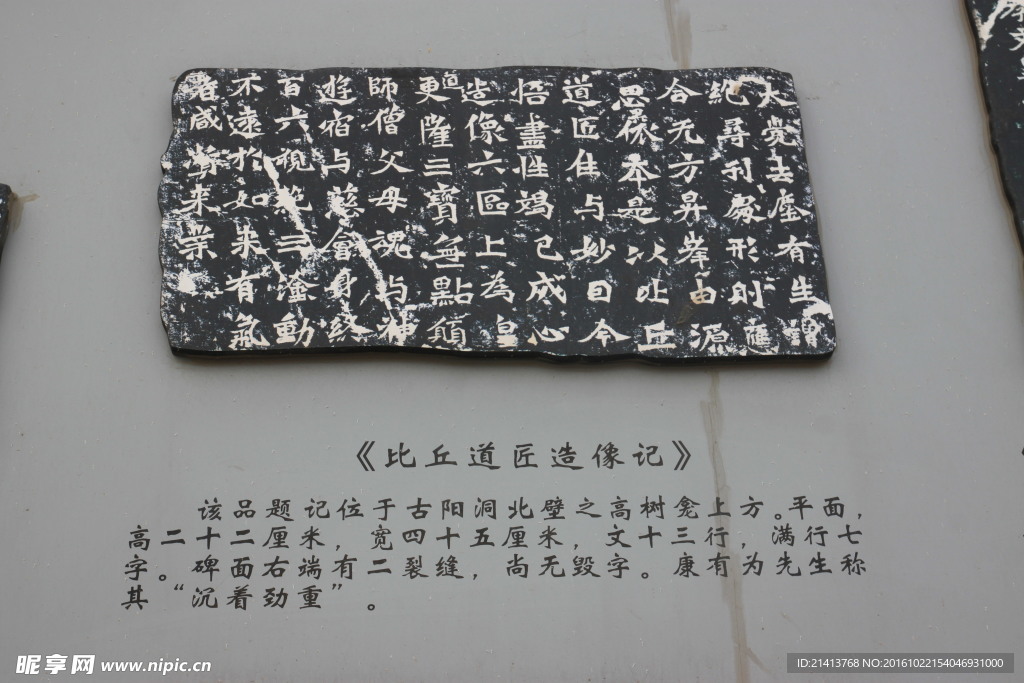 大覺去塵有生
絶尋刊形則應
合无方昇峷由源
思依本是以比丘
道匠住与妙曰今
悟盡性竭已成心
造像六區上為皇
道更隆三寶無點顛
師僧父母魂与神
遊宿与慈會身終
百六視絶三塗動
不遠於如来有氣
者咸嘗来業
《比丘道匠造像记》
该品题记位于古阳洞北壁之高树龛上方。平面，
高二十二厘米，宽四十五厘米，文十三行，满行七
字。碑面右端有二裂缝，尚无毁字。康有为先生称
其“沉着劲重”。
昵享网 www.nipic.cn
ID:21413768 NO:20161022154046931000